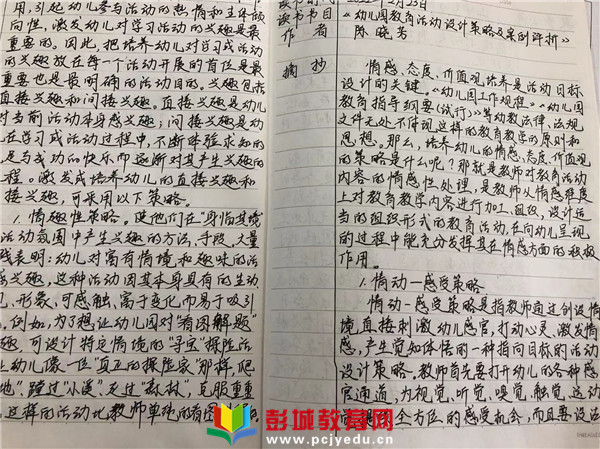 用，引起幼儿参与活动的热情和主体倾
向性，激发幼儿对学习活动的兴趣是最
重要的。因此，把培养幼儿对学习或活动
的兴趣放在每一个活动开展的首位是最
重要也是最明确的活动目的。兴趣包括
直接兴趣和间接兴趣。直接兴趣是幼儿
对当前活动本身感兴趣；间接兴趣是幼
在学习或活动过程中，不断体验求知的
足与成功的快乐而逐渐对其产生兴趣的
程。激发或培养幼儿的直接兴趣和
接兴趣，可采用以下策略。
1. 情趣性策略。使他们在“身临其境”
活动氛围中产生兴趣的方法、手段，大量
践表明：幼儿对富有情境和趣味的活
兴趣，这种活动因其本身具有的生动
、形象、可感触、富于变化而易于吸引
。例如，为了想让幼儿园对“看图解题”
趣，可设计特定情境的“寻宝”探险活
让幼儿像一位“真正的探险家”那样，爬
地”蹚过“小溪”走过“森林”，克服重重
这样的活动比教师单纯的看图
读书时间
2月23日
读书书目
《幼儿园教育活动设计策略及案例评析》
作者
陈晓芳
摘抄
情感、态度、价值观培养是活动目标
设计的关键。《幼儿园工作规程》《幼儿园
教育指导纲要（试行）》等幼教法律、法规
文件无处不体现这样的教育教学的原则和
思想。那么，培养幼儿的情感、态度、价值观
的策略是什么呢？那就是教师对教育活动
内容的情感性处理，是教师从情感维度
上对教育教学内容进行加工、组织，设计适
当的组织形式的教育活动，在向幼儿呈现
的过程中能充分发挥其在情感方面的积极
作用。
1. 情动—感受策略
情动—感受策略是指教师通过创设情
境，直接刺激幼儿感官，打动心灵，激发情
感，产生觉知体悟的一种指向目标的活动
设计策略。教师首先要打开幼儿的各种感
官通道，为视觉、听觉、嗅觉、触觉、运动
全方位的感受机会，而且要设法
彭城教育网
www.pcjyedu.cn